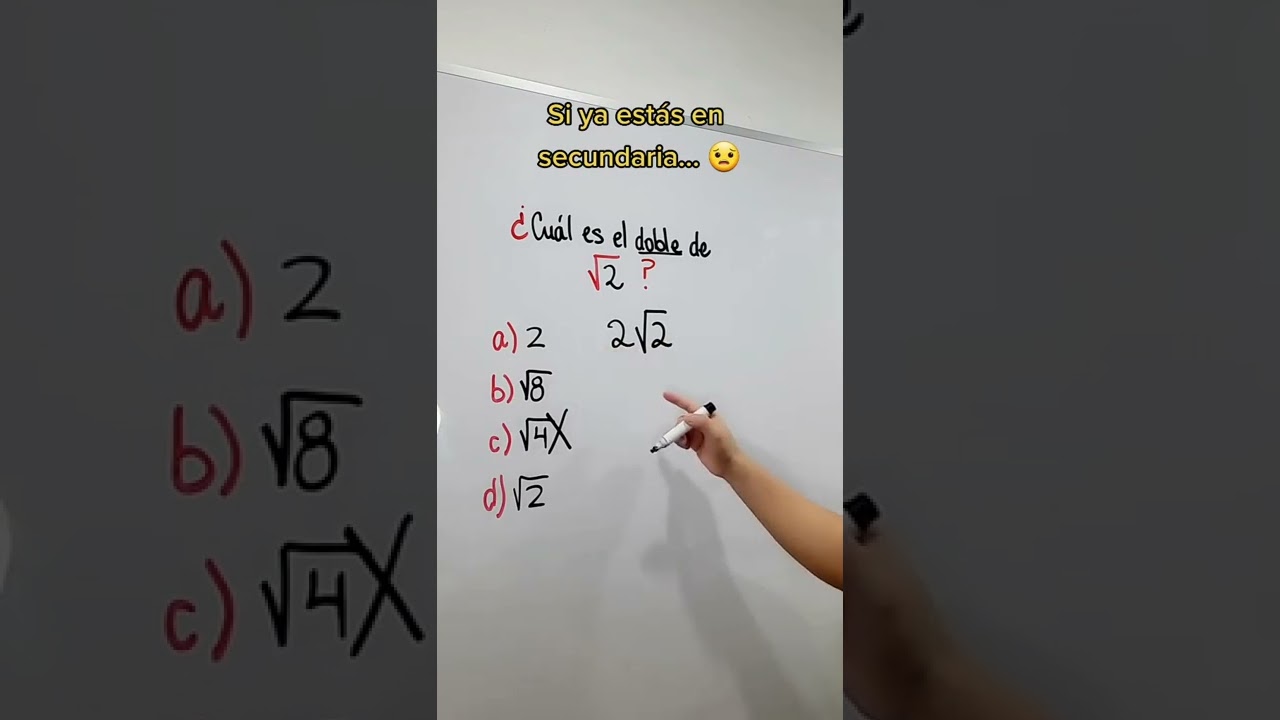 Si ya estás en
secundaria... 😟
¿Cuál es el doble de
√2 ?
a) 2
2√2
b) √8
c) √4 X
d) √2
a) 2
b) √8
c) √4 X